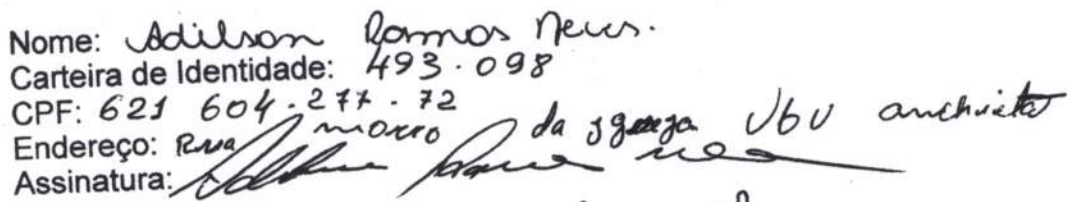 Nome: Adilson Ramos Neves.
Carteira de Identidade: 493.098
CPF: 621 604.277.72
Endereço: Rua morro da Igreja Ubu anchieta
Assinatura: